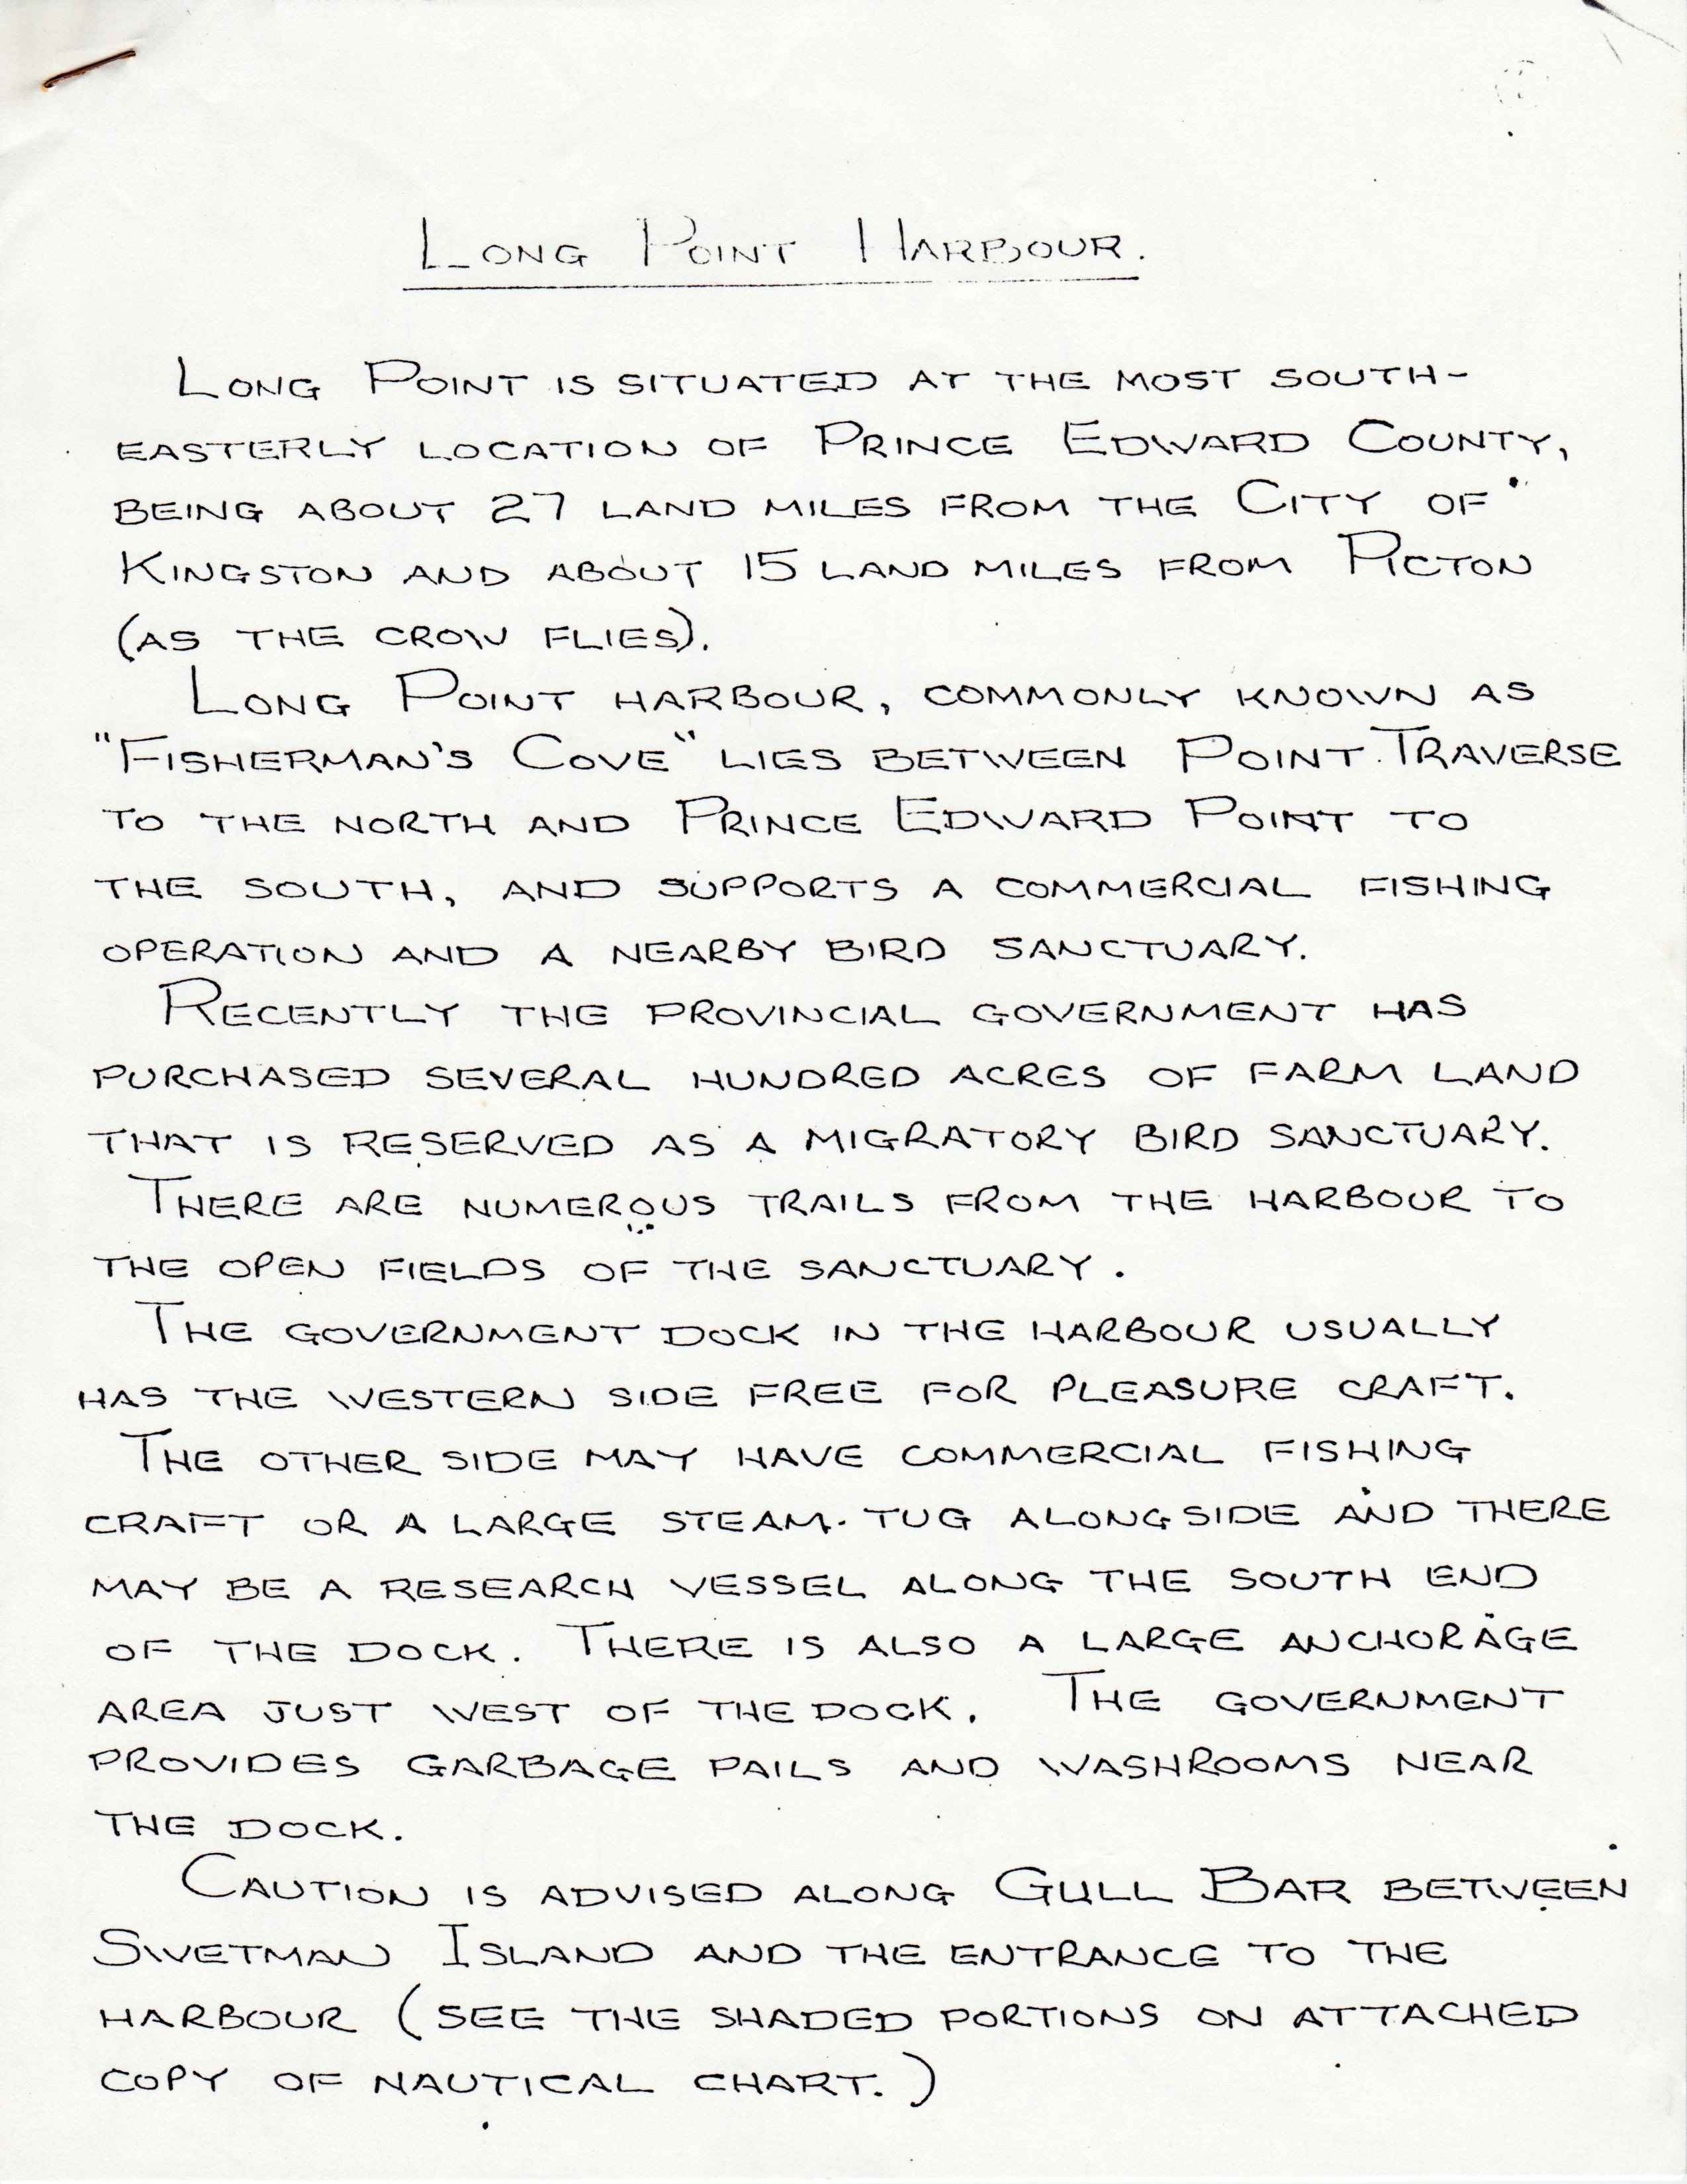 Long Point Harbour.
Long Point is situated at the most south-
easterly location of Prince Edward County,
being about 27 land miles from the City of
Kingston and about 15 land miles from Picton
(as the crow flies).
Long Point harbour, commonly known as
"Fisherman's Cove" lies between Point Traverse
to the north and Prince Edward Point to
the south, and supports a commercial fishing
operation and a nearby bird sanctuary.
Recently the provincial government has
purchased several hundred acres of farm land
that is reserved as a migratory bird sanctuary.
There are numerous trails from the harbour to
the open fields of the sanctuary.
The government dock in the harbour usually
has the western side free for pleasure craft.
The other side may have commercial fishing
craft or a large steam tug alongside and there
may be a research vessel along the south end
of the dock. There is also a large anchorage
area just west of the dock. The government
provides garbage pails and washrooms near
the dock.
Caution is advised along Gull Bar between
Swetman Island and the entrance to the
harbour (see the shaded portions on attached
copy of nautical chart.)